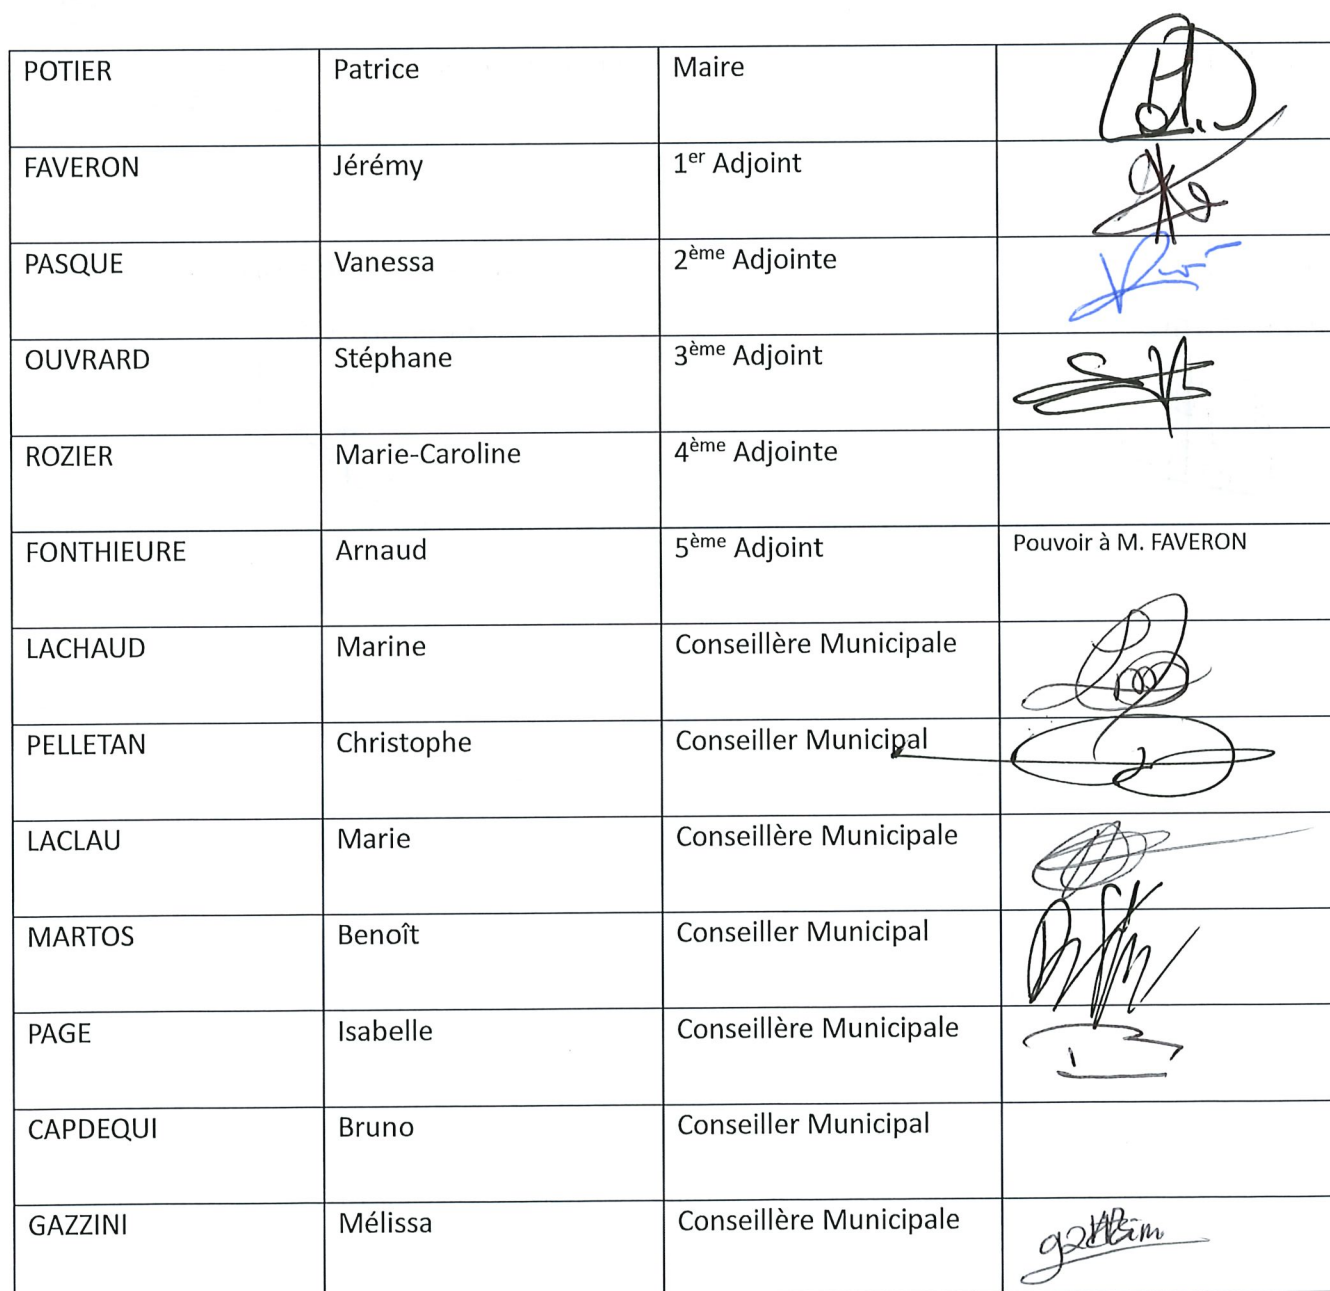 POTIER Patrice Maire
FAVERON Jérémy 1er Adjoint
PASQUE Vanessa 2ème Adjointe
OUVRARD Stéphane 3ème Adjoint
ROZIER Marie-Caroline 4ème Adjointe
FONTHIEURE Arnaud 5ème Adjoint Pouvoir à M. FAVERON
LACHAUD Marine Conseillère Municipale
PELLETAN Christophe Conseiller Municipal
LACLAU Marie Conseillère Municipale
MARTOS Benoît Conseiller Municipal
PAGE Isabelle Conseillère Municipale
CAPDEQUI Bruno Conseiller Municipal
GAZZINI Mélissa Conseillère Municipale